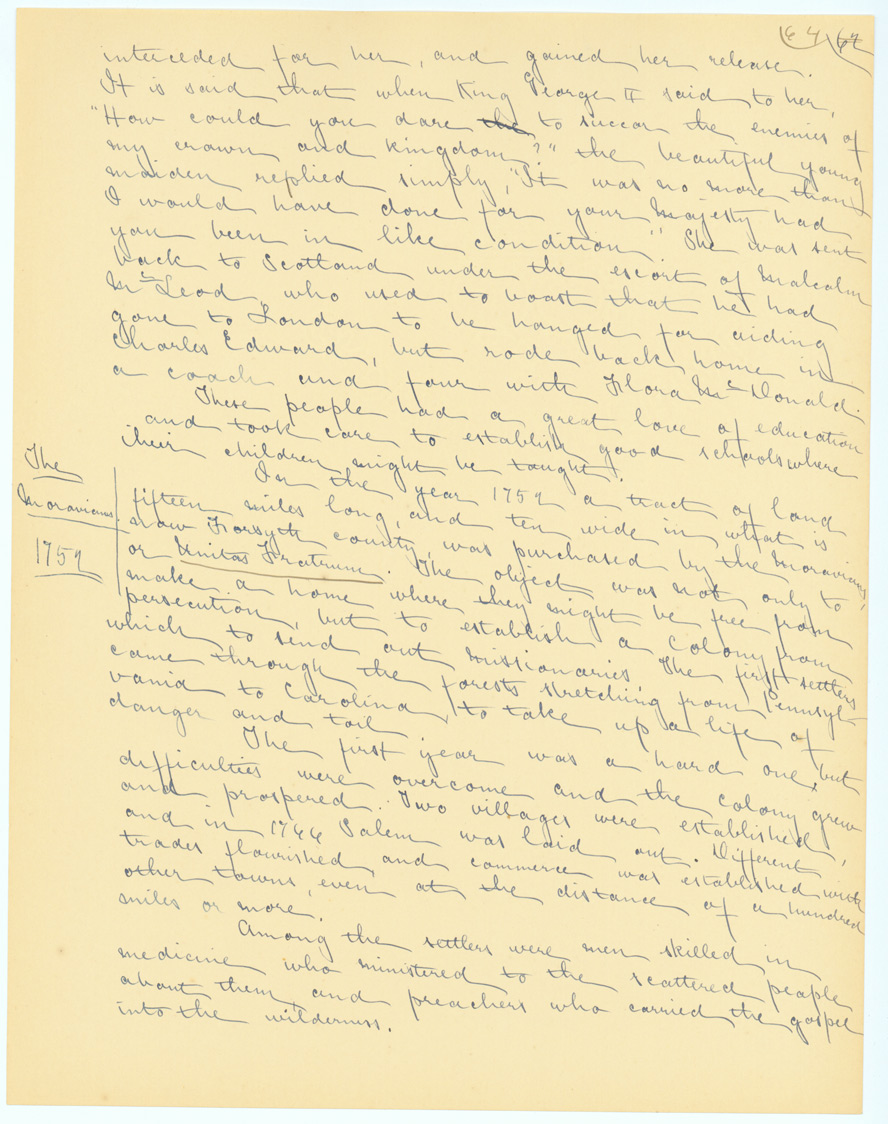 64 62
interceded for her, and gained her release.
It is said that when King George II said to her,
"How could you dare the to succor the enemies of
my crown and kingdom?" the beautiful young
maiden replied simply, "It was no more than
I would have done for your Majesty had
you been in like condition". She was sent
back to Scotland under the escort of Malcolm
McLeod, who used to boast that he had
gone to London to be hanged for aiding
Charles Edward, but rode back home in
a coach and four with Flora McDonald.
These people had a great love of education
and took care to establish good schools where
their children might be taught.
The
Moravians.
1759
In the year 1759 a tract of land
fifteen miles long, and ten wide in what is
now Forsyth county, was purchased by the Moravians,
or Unitas Fratrum. The object was not only to
make a home where they might be free from
persecution, but to establish a colony from
which to send out missionaries. The first settlers
came through the forests stretching from Pennsyl-
vania to Carolina, to take up a life of
danger and toil
The first year was a hard one, but
difficulties were overcome and the colony grew
and prospered. Two villages were established,
and in 1766 Salem was laid out. Different
trades flourished and commerce was established with
other towns even at the distance of a hundred
miles or more.
Among the settlers were men skilled in
medicine who ministered to the scattered people
about them, and preachers who carried the gospel
into the wilderness.